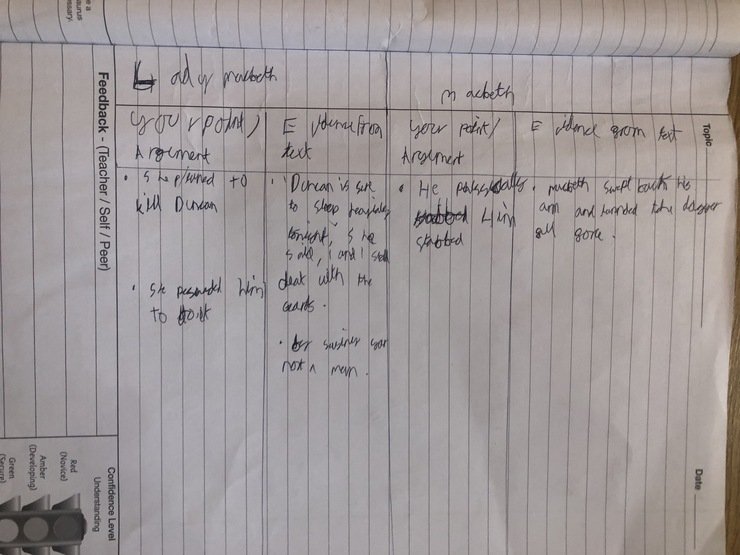 Topic
Date
Lady macbeth
macbeth
your point/
Argument
Evidence from
text
your point/
Argument
Evidence from text
• She planned to
kill Duncan
• She
him
to do it
• 'Duncan is sure
to sleep heavily
tonight', she
said, 'and I shall
deal with the
• your
not a man.
• He
Him
stabbed
• macbeth swept back his
arm and the dagger
gone.
Feedback - (Teacher / Self / Peer)
Confidence Level
Understanding
Red
(Novice)
Amber
(Developing)
Green
(Secure)